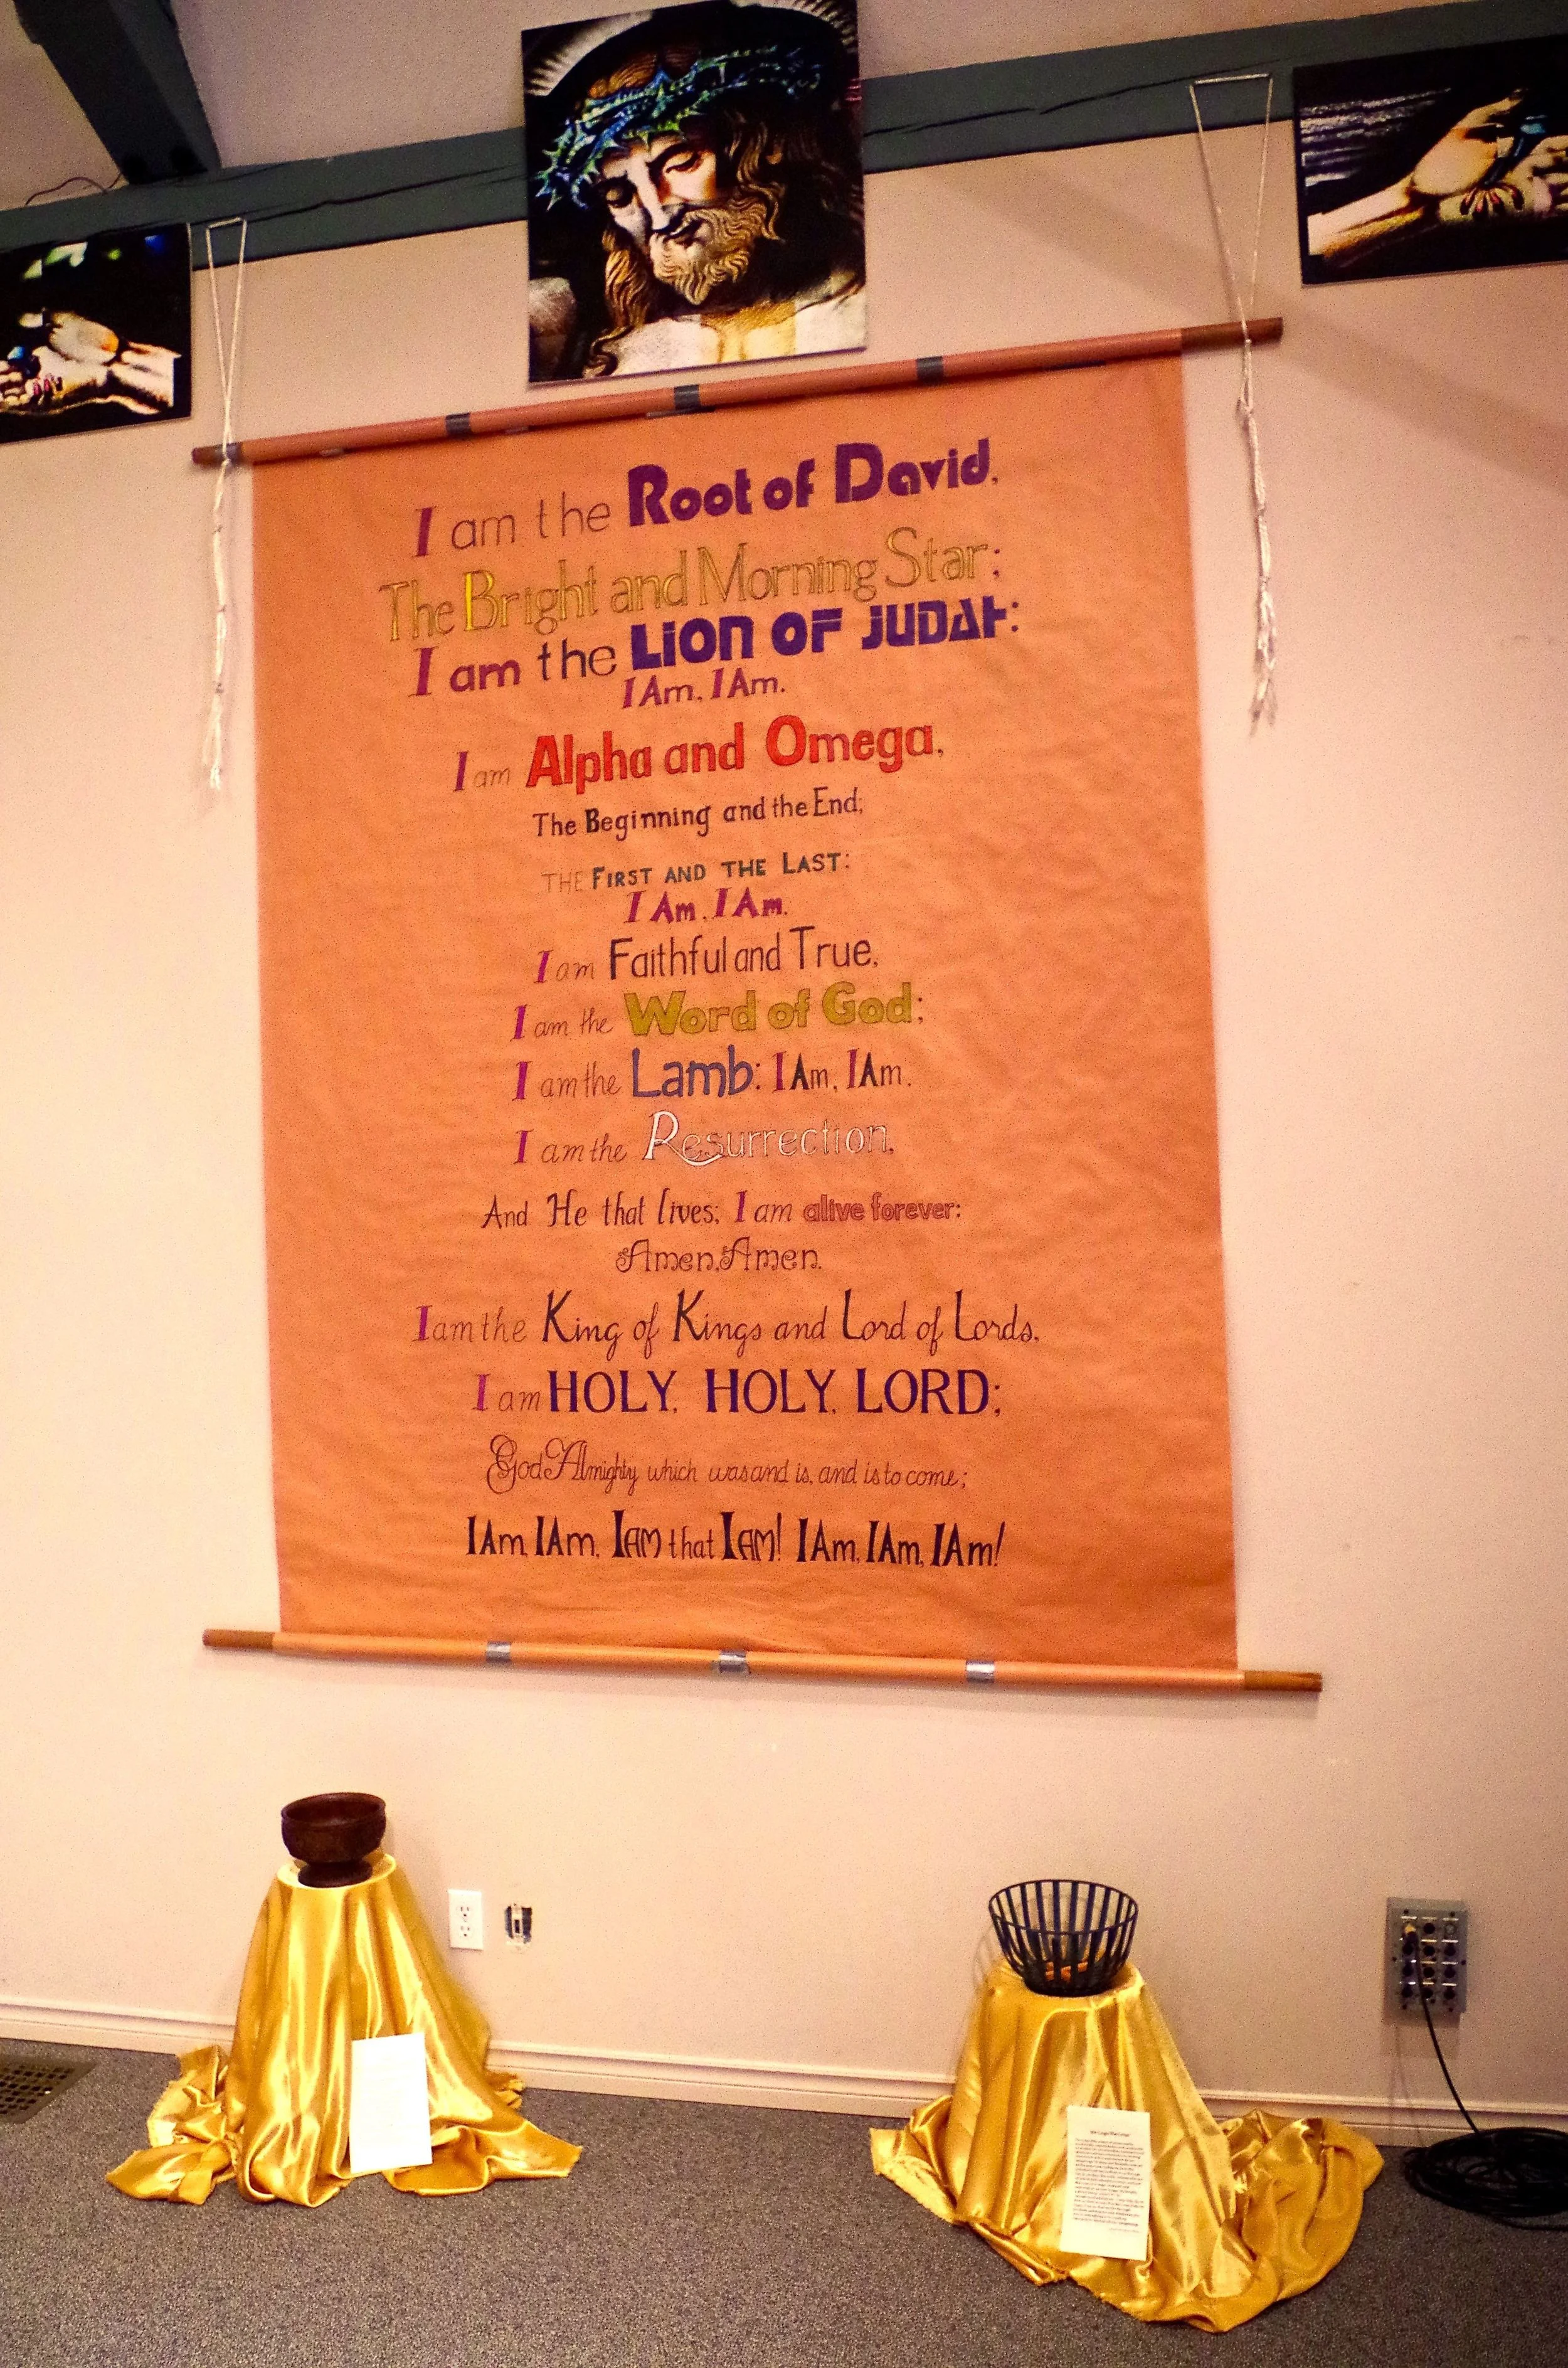 I am the Root of David,
The Bright and Morning Star;
I am the LION OF JUDAH:
I Am, I Am.
I am Alpha and Omega,
The Beginning and the End;
THE FIRST AND THE LAST:
I Am, I Am.
I am Faithful and True,
I am the Word of God;
I am the Lamb: I Am, I Am.
I am the Resurrection,
And He that lives; I am alive forever:
Amen, Amen.
I am the King of Kings and Lord of Lords,
I am HOLY, HOLY, LORD;
God Almighty which was and is, and is to come;
I Am, I Am, I AM that I AM! I Am, I Am, I Am!